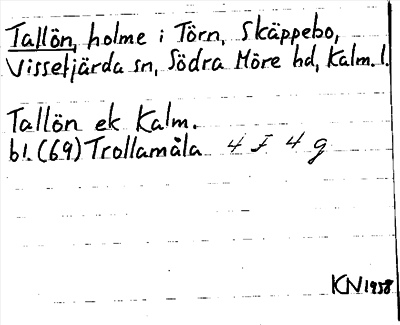 Tallön, holme i Törn, Skäppebo,
Vissefjärda sn, Södra Möre hd, Kalm. l.
Tallön ek Kalm.
bl. (69) Trollamåla 4 F 4 g
KN 1958